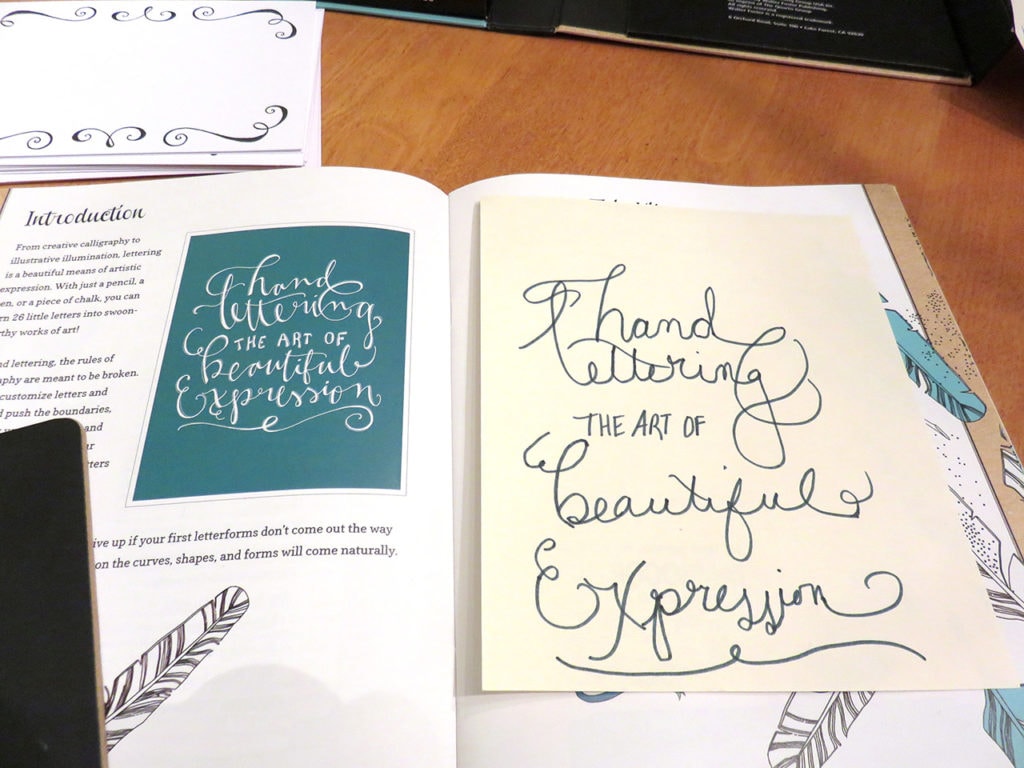 All rights reserved.
Walter Foster is a registered trademark.
6 Orchard Road, Suite 100 • Lake Forest, CA 92630
Introduction
From creative calligraphy to
illustrative illumination, lettering
is a beautiful means of artistic
expression. With just a pencil, a
en, or a piece of chalk, you can
rn 26 little letters into swoon-
rthy works of art!
nd lettering, the rules of
aphy are meant to be broken.
customize letters and
d push the boundaries,
and
ur
tters
ive up if your first letterforms don't come out the way
on the curves, shapes, and forms will come naturally.
hand
lettering
THE ART OF
beautiful
Expression
hand
lettering
THE ART OF
beautiful
Expression